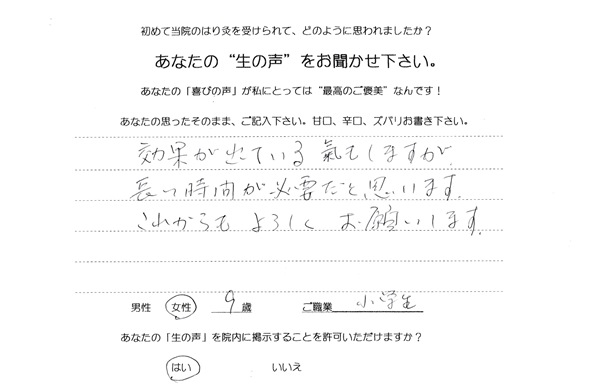 初めて当院のはり灸を受けられて、どのように思われましたか？
あなたの“生の声”をお聞かせ下さい。
あなたの「喜びの声」が私にとっては“最高のご褒美”なんです！
あなたの思ったそのまま、ご記入下さい。甘口、辛口、ズバリお書き下さい。
効果が出ている氣もしますが、
長い時間が必要だと思います。
これからも よろしく お願いします。
男性 女性 9 歳 ご職業 小学生
あなたの「生の声」を院内に掲示することを許可いただけますか？
はい いいえ